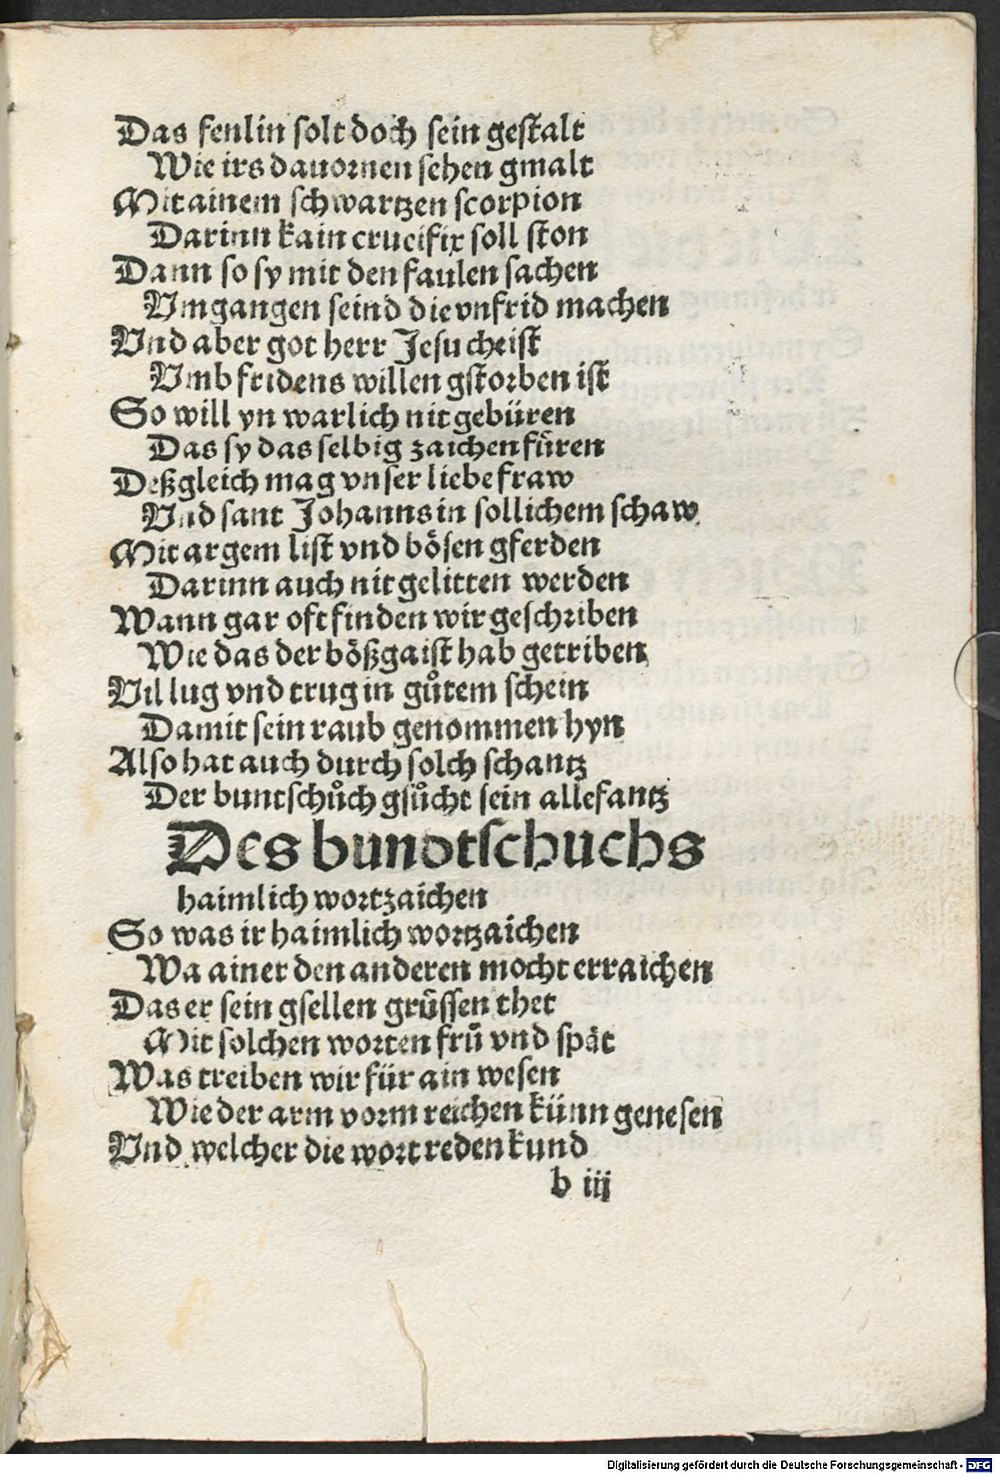 Das fenlin ſolt doch ſein geſtalt
Wie irs dauornen ſehen gmalt
Mit ainem ſchwartzen ſcorpion
Darinn kain crucifix ſoll ſton
Dann ſo ſy mit den faulen ſachen
Vmgangen ſeind die vnfrid machen
Vnd aber got herr Jeſu cheiſt
Vmb fridens willen gſtorben iſt
So will yn warlich nit gebüren
Das ſy das ſelbig zaichen fuͤren
Deßgleich mag vnſer liebe fraw
Vnd ſant Johanns in ſollichem ſchaw
Mit argem liſt vnd böſen gferden
Darinn auch nit gelitten werden
Wann gar oft finden wir geſchriben
Wie das der bößgaiſt hab getriben
Vil lug vnd trug in guͦtem ſchein
Damit ſein raub genommen hyn
Alſo hat auch durch ſolch ſchantz
Der buntſchuͦch gſuͦcht ſein allefantz
Des bundtſchuchs
haimlich wortzaichen
So was ir haimlich wortzaichen
Wa ainer den anderen mocht erraichen
Das er ſein gſellen gruͤſſen thet
Mit ſolchen worten fruͤ vnd ſpät
Was treiben wir für ain weſen
Wie der arm vorm reichen künn geneſen
Vnd welcher die wort reden kund
b iij
Digitalisierung gefördert durch die Deutsche Forschungsgemeinschaft - DFG